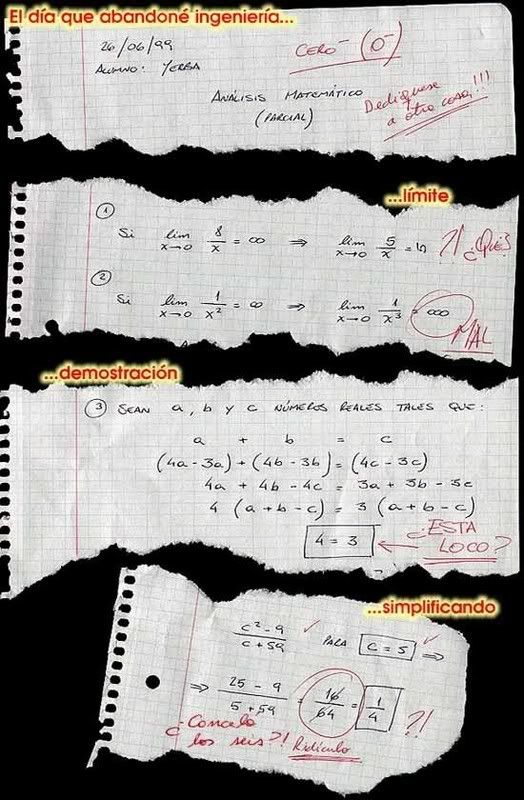 El día que abandoné ingeniería...
26/06/99
CERO⁻ (0⁻)
ALUMNO: YERBA
ANÁLISIS MATEMÁTICO
(PARCIAL)
Dedíquese
a otra cosa!!!
...límite
1
Si lim x→0 8/x = ∞ ⇒ lim x→0 5/x = ហ ?! ¿QUÉ?
2
Si lim x→0 1/x² = ∞ ⇒ lim x→0 1/x³ = ooo
MAL
...demostración
3 SEAN a, b y c NÚMEROS REALES TALES QUE:
a + b = c
(4a - 3a) + (4b - 3b) = (4c - 3c)
4a + 4b - 4c = 3a + 3b - 3c
4 (a + b - c) = 3 (a + b - c)
4 = 3
¿ESTA
LOCO?
...simplificando
c² - 9 / c + 59 ✓ PARA c = 5 ✓ ⇒
⇒ 25 - 9 / 5 + 59 = 16/64 = 1/4 ?!
¿Canceló
los seis?! Ridículo